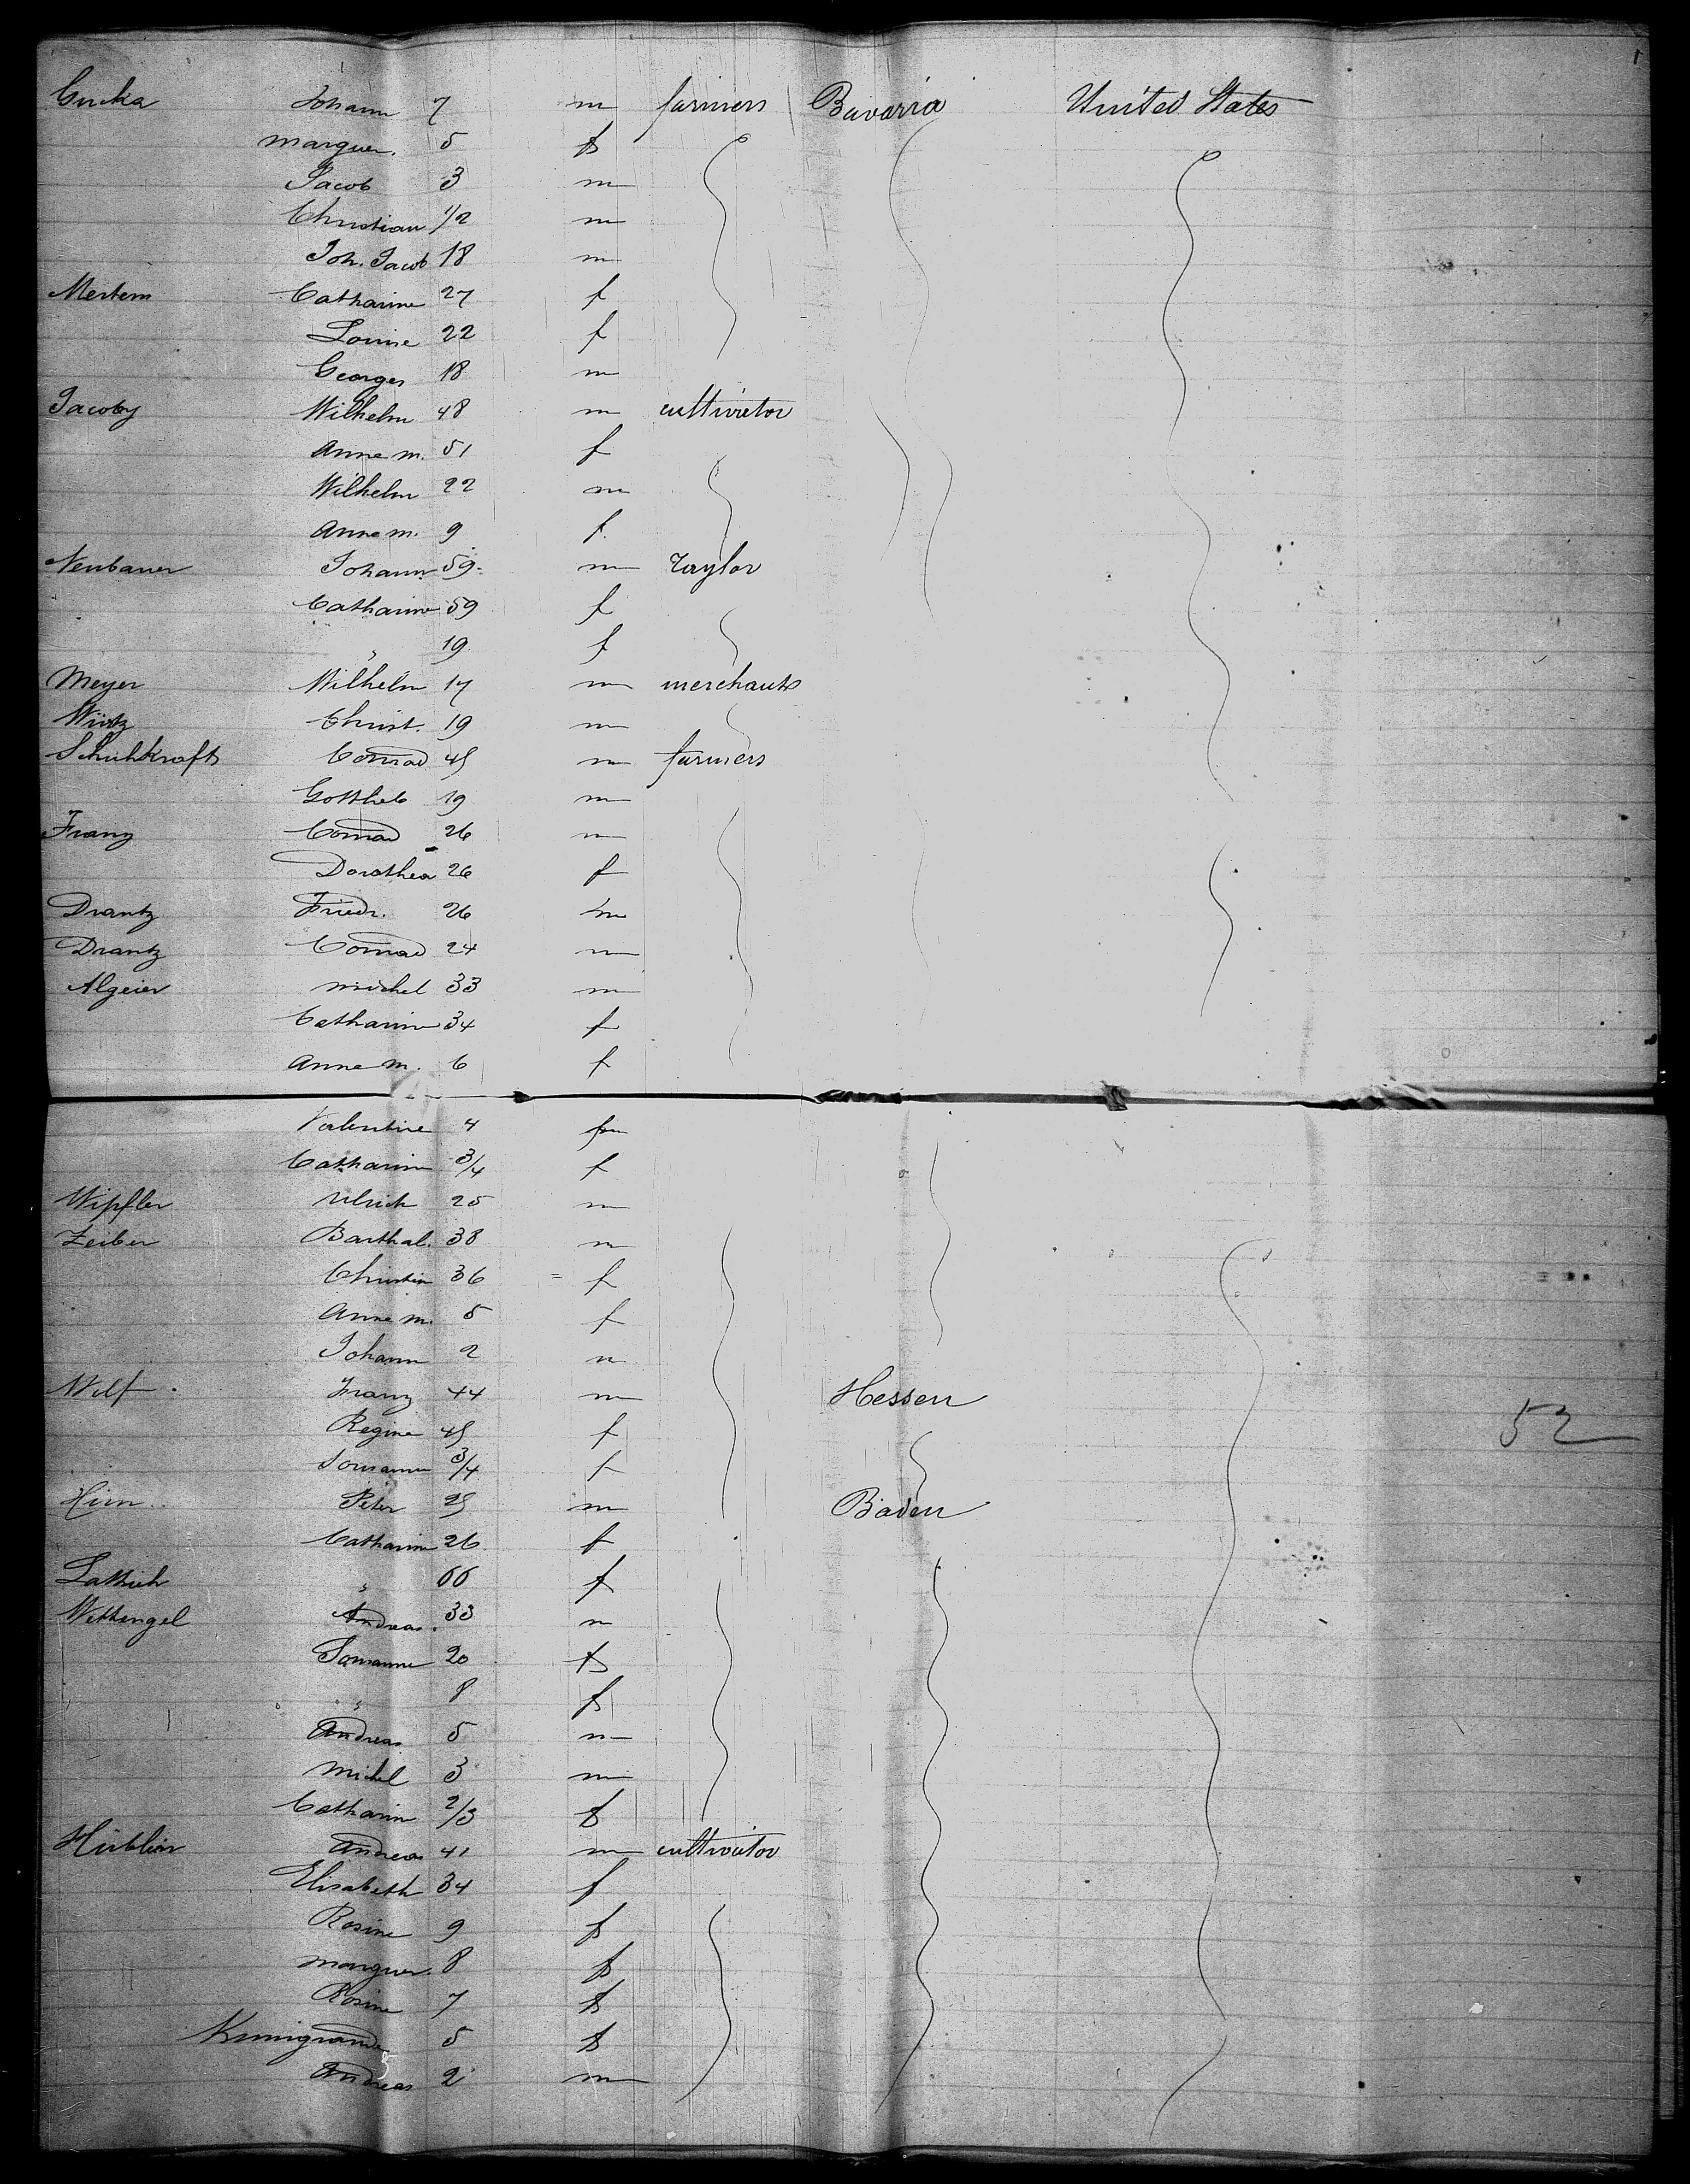 Johann 7 m farmers Bavaria United States
marguer. 5 f
Jacob 3 m
Christian 1/2 m
Joh. Jacob 18 m
Mertem Catharine 27 f
Louise 22 f
Georges 18 m
Jacoby Wilhelm 48 m cultivator
Anne m. 51 f
Wilhelm 22 m
Anne m. 9 f
Neubauer Johann 59 m Taylor
Catharine 59 f
" 19 f
Meyer Wilhelm 17 m merchants
Würtz Christ. 19 m
Schuhkraft Conrad 45 m farmers
Gottlieb 19 m
Franz Conrad 26 m
Dorothea 26 f
Drantz Friedr. 26 m
Drantz Conrad 24 m
Algeier michel 33 m
Catharine 34 f
Anne m. 6 f
Valentine 4 m
Catharine 3/4 f
Wipfler Ulrich 25 m
Zeiber Barthal. 38 m
Christin 36 f
Anne m. 5 f
Johann 2 m
Wolf Franz 44 m Hessen
Regine 45 f
3/4 f
Hirn Peter 25 m Baden
Catharine 26 f
Lattich " 66 f
Wettengel Andreas 33 m
Susanne 20 f
" 8 f
Andreas 5 m
Michel 3 m
Catharin 2/3 f
Hüblin Andreas 41 m cultivator
Elisabeth 34 f
Rosine 9 f
marguer. 8 f
Rosine 7 f
5 f
Andreas 2 m
52